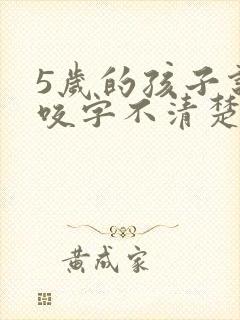 5歲的孩子
咬字不清楚
黃成家